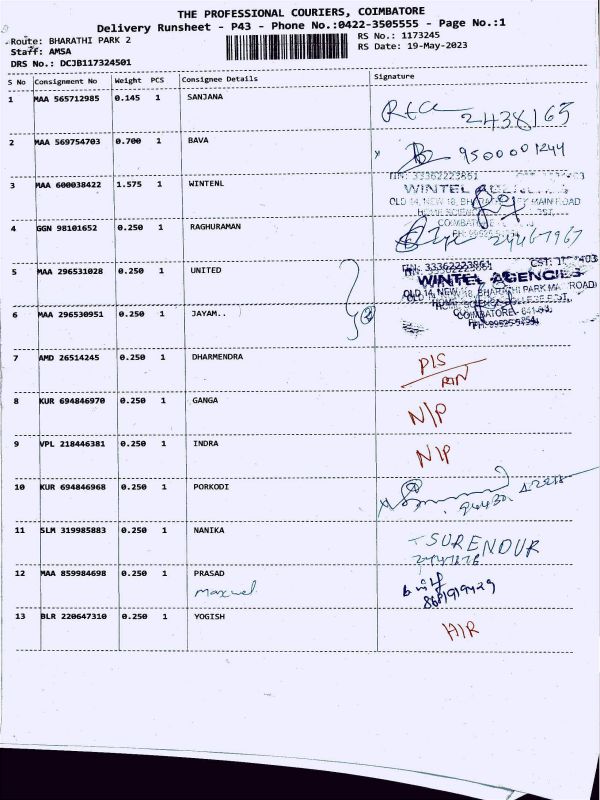 THE PROFESSIONAL COURIERS, COIMBATORE
Delivery Runsheet - P43 - Phone No.:0422-3505555 - Page No.:1
Route: BHARATHI PARK 2 RS No.: 1173245
Staff: AMSA RS Date: 19-May-2023
DRS No.: DCJB117324501
S No Consignment No Weight PCS Consignee Details Signature
1 MAA 565712985 0.145 1 SANJANA
2438165
2 MAA 569754703 0.700 1 BAVA
9500001244
3 MAA 600038422 1.575 1 WINTENL
TIN: 33362223861
WINTEL
OLD 14, NEW 18, MAIN ROAD
4 GGN 98101652 0.250 1 RAGHURAMAN
24467967
5 MAA 296531028 0.250 1 UNITED
TIN: 33362223861 CST:
WINTEL AGENCIES
OLD 14, NEW 18, BHARATHI PARK MA ROAD
6 MAA 296530951 0.250 1 JAYAM..
2
COIMBATORE - 641
PH: 99525
7 AMD 26514245 0.250 1 DHARMENDRA
P/S
8 KUR 694846970 0.250 1 GANGA N/P
9 VPL 218446381 0.250 1 INDRA N/P
10 KUR 694846968 0.250 1 PORKODI
11 SLM 319985883 0.250 1 NANIKA
SURENDUR
12 MAA 859984698 0.250 1 PRASAD
13 BLR 220647310 0.250 1 YOGISH